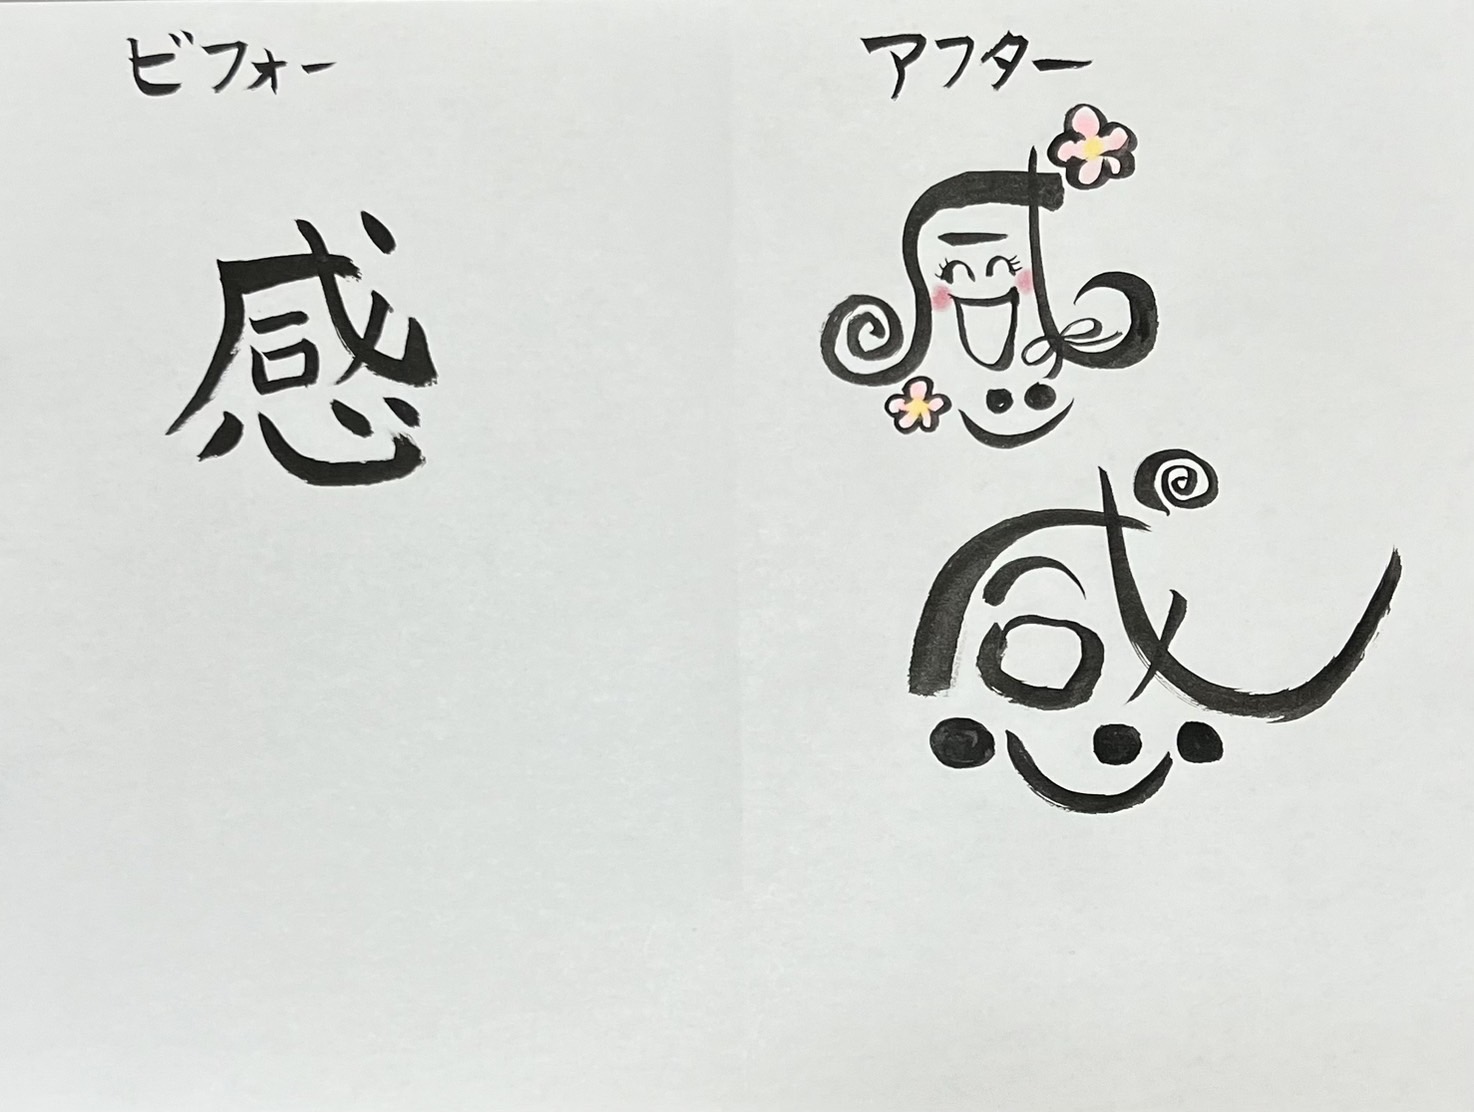 ビフォー
感
アフター
感
感